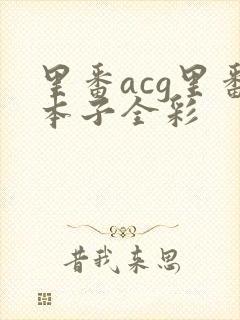 里番acg里番
本子全彩
昔我来思